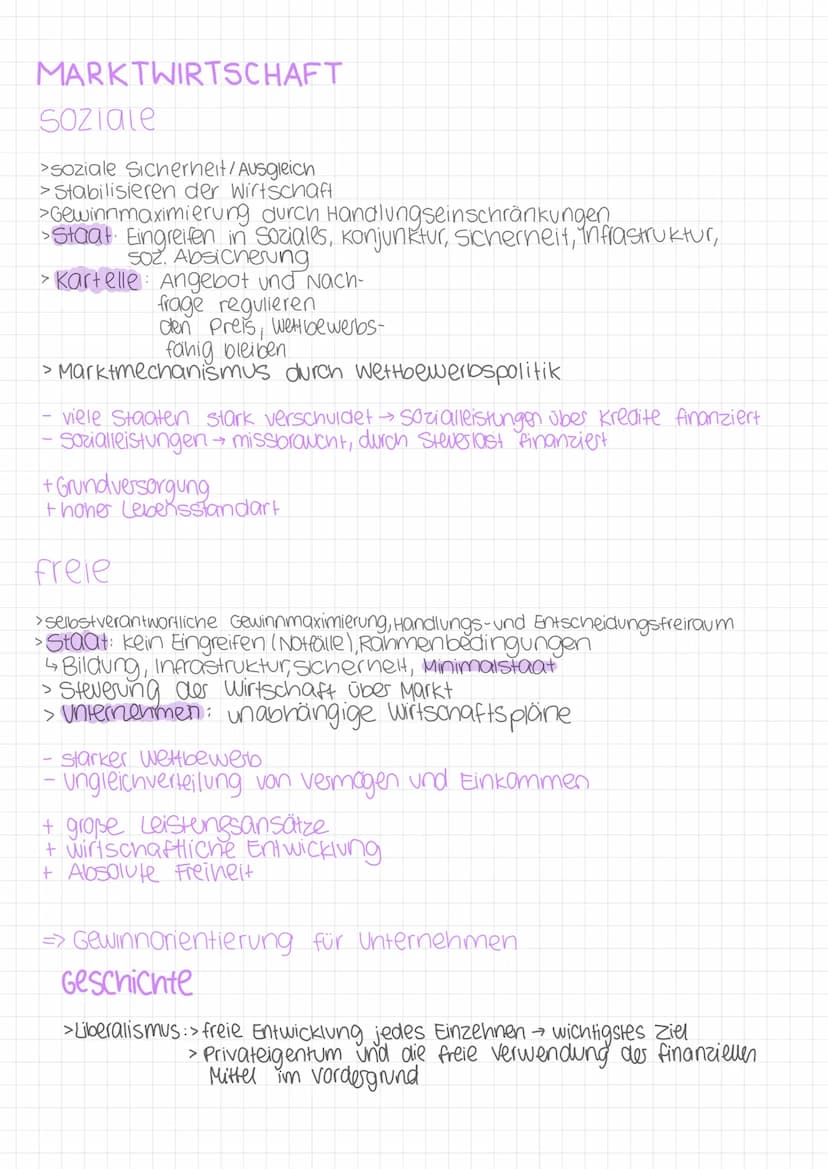 MARKTWIRTSCHAFT
soziale
>soziale Sicherheit/Ausgleich
> Stabilisieren der Wirtschaft
>Gewinnmaximierung durch Handlungseinschränkungen
>Staat: Eingreifen in Soziales, Konjunktur, Sicherheit, Infrastruktur,
soz. Absicherung
> Kartelle: Angebot und Nach-
frage regulieren
den Preis, Wettbewerbs-
fähig bleiben
> Marktmechanismus durch Wettbewerbspolitik
- viele Staaten stark verschuldet → Sozialleistungen über Kredite finanziert
- Sozialleistungen → missbraucht, durch Steuerlast finanziert
+ Grundversorgung
+ hoher Lebensstandart
freie
>selbstverantwortliche Gewinnmaximierung, Handlungs- und Entscheidungsfreiraum
> Staat: kein Eingreifen (Notfälle), Rahmenbedingungen
↳ Bildung, Infrastruktur, Sicherheit, Minimalstaat
> Steuerung der Wirtschaft über Markt
> Unternehmen: unabhängige Wirtschaftspläne
- starker Wettbewerb
- Ungleichverteilung von Vermögen und Einkommen
+ große Leistungsansätze
+ wirtschaftliche Entwicklung
+ Absolute Freiheit
=> Gewinnorientierung für Unternehmen
Geschichte
>Liberalismus:> freie Entwicklung jedes Einzelnen → wichtigstes Ziel
> Privateigentum und die freie Verwendung der finanziellen
Mittel im Vordergrund